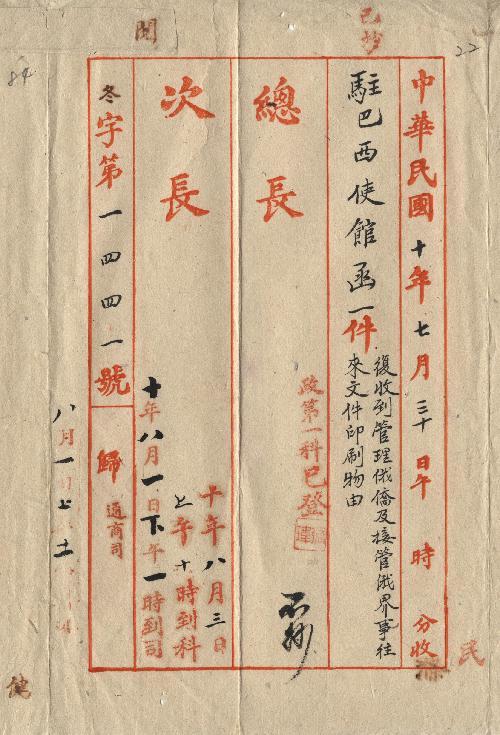 已抄
閱
22
84
中華民國十年七月三十日午 時 分收
駐巴西使館函一件
復收到管理俄僑及接管俄界事往
來文件印刷物由
總長
政第一科已登
不抄
次長
十年八月三日
上午十時到科
十年八月一日下午一時到司
冬字第一四四一號
歸通商司
八月一
民
健